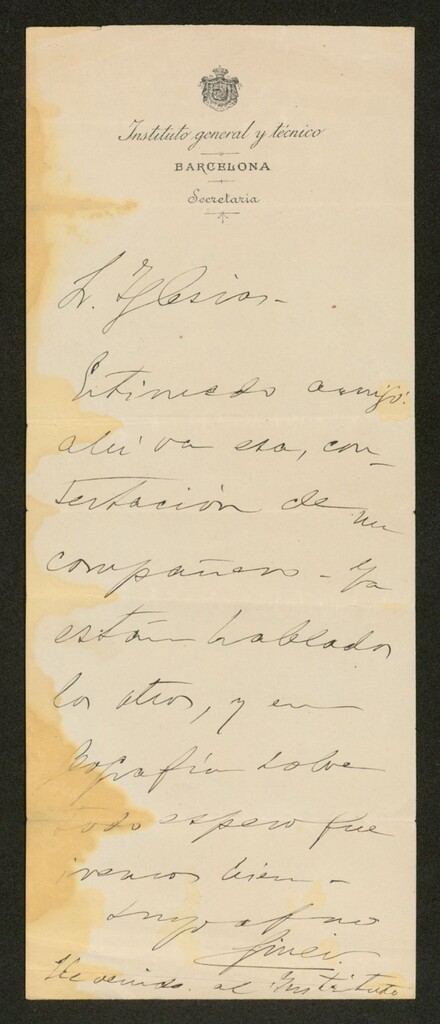 Instituto general y técnico
BARCELONA
Secretaria
Sr. Iglesias -
Estimado amigo:
ahí va esa, con-
testación de un
compañero - Ya
están hablados
los otros, y en
Geografía sobre
todo espero que
iremos bien -
suyo afmo
Giner
He venido al Instituto